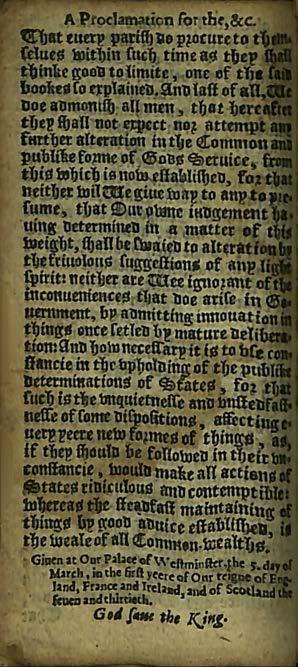 A Proclamation for the, &c.
That euery parish do procure to them-
selues within such time as they shall
thinke good to limite, one of the said
bookes so explained. And last of all, We
doe admonish all men, that hereafter
they shall not expect nor attempt any
further alteration in the Common and
publike forme of Gods Seruice, from
this which is now established, for that
neither wil We giue way to any to pre-
sume, that Our owne iudgement ha-
uing determined in a matter of this
weight, shall be swaied to alteration by
the friuolous suggestions of any light
spirit: neither are Wee ignorant of the
inconueniences that doe arise in Go-
uernment, by admitting innouation in
things once setled by mature delibera-
tion: And how necessary it is to vse con-
stancie in the vpholding of the publike
determinations of States, for that
such is the vnquietnesse and vnstedfast-
nesse of some dispositions, affecting e-
uery yeere new formes of things, as,
if they should be followed in their vn-
constancie, would make all actions of
States ridiculous and contemptible:
whereas the steadfast maintaining of
things by good aduice established, is
the weale of all Common-wealths.
Giuen at Our Palace of Westminster, the 5. day of
March, in the first yeere of Our reigne of Eng-
land, France and Ireland, and of Scotland the
seuen and thirtieth.
God saue the King.